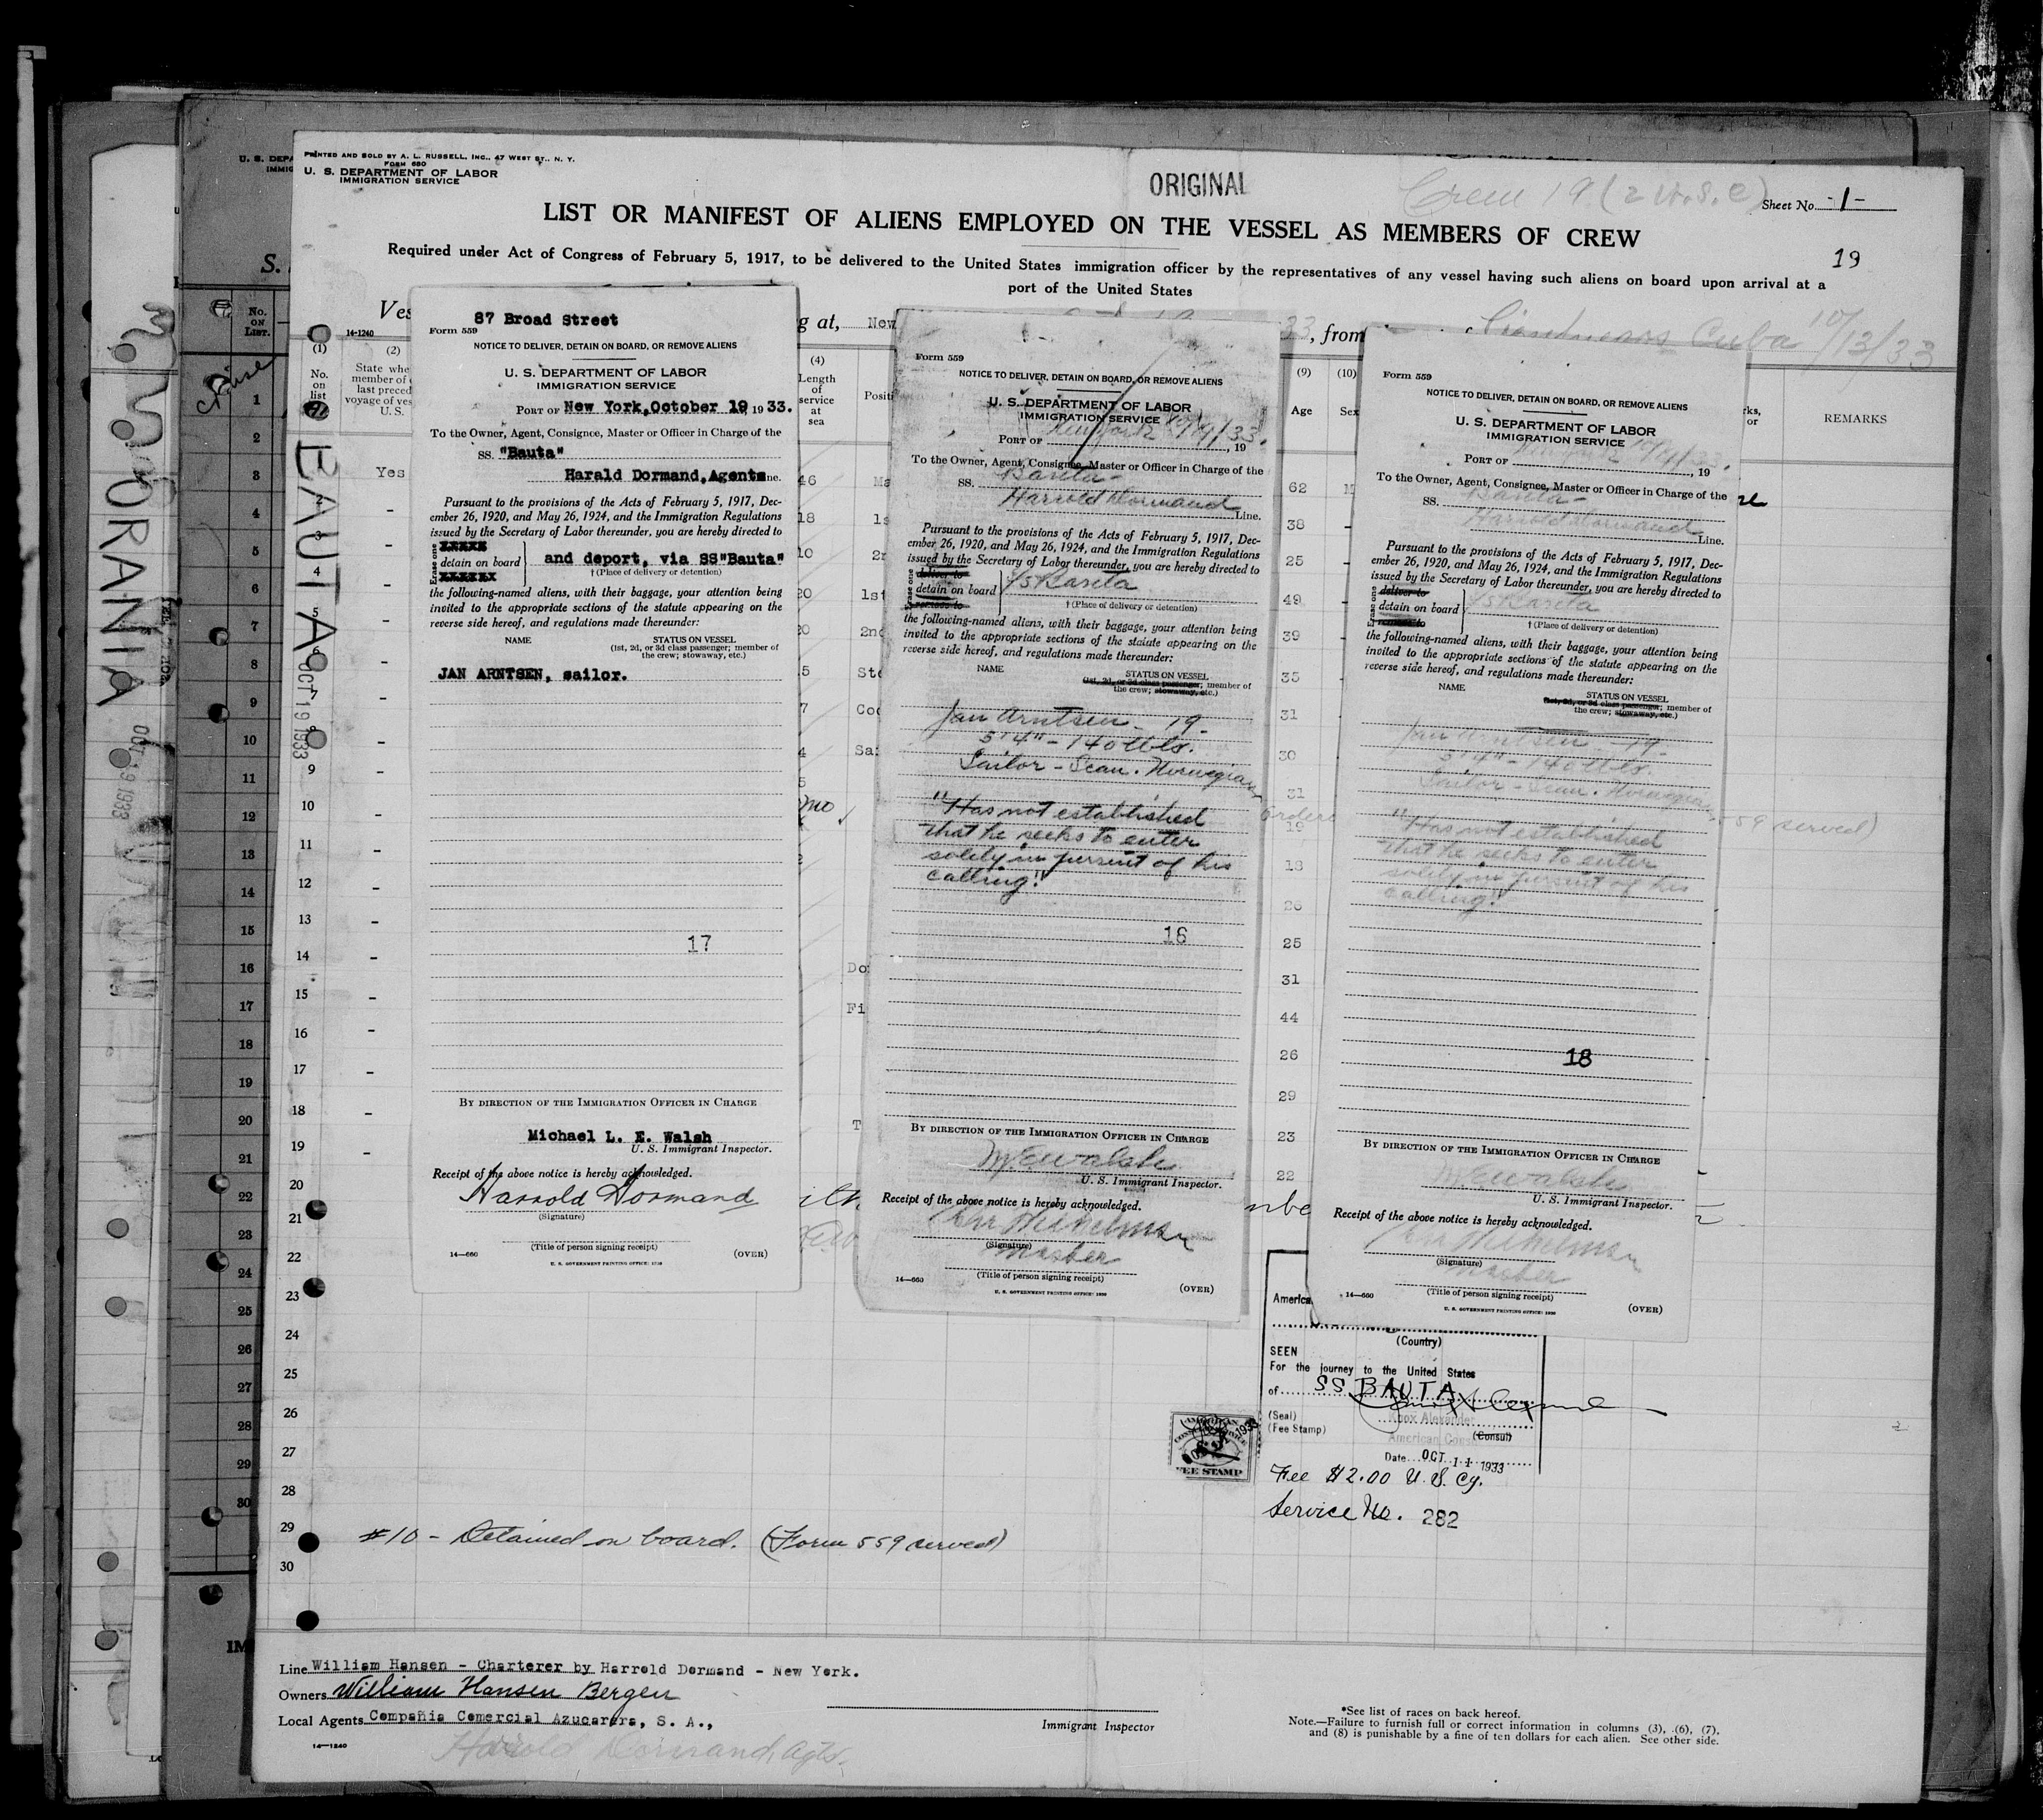 PRINTED AND SOLD BY A. L. RUSSELL, INC., 47 WEST ST., N. Y.
FORM 680
U. S. DEPARTMENT OF LABOR
IMMIGRATION SERVICE
ORIGINAL
Crew 19 (2 U.S.C)
Sheet No. -1-
LIST OR MANIFEST OF ALIENS EMPLOYED ON THE VESSEL AS MEMBERS OF CREW
19
Required under Act of Congress of February 5, 1917, to be delivered to the United States immigration officer by the representatives of any vessel having such aliens on board upon arrival at a
port of the United States
g at, New
33, from
Cuba 10/13/33
14-1240
(1)
No.
on
list
(2)
(4)
Length
of
service
at
sea
(9)
Age
(10)
REMARKS
Yes
BAUTA
OCT 19 1933
ORANIA
OCT 19 1933
87 Broad Street
Form 559
NOTICE TO DELIVER, DETAIN ON BOARD, OR REMOVE ALIENS
U. S. DEPARTMENT OF LABOR
IMMIGRATION SERVICE
PORT OF New York, October 19 1933.
To the Owner, Agent, Consignee, Master or Officer in Charge of the
SS. "Bauta"
Harald Dormand, Agents ne.
Pursuant to the provisions of the Acts of February 5, 1917, Dec-
ember 26, 1920, and May 26, 1924, and the Immigration Regulations
issued by the Secretary of Labor thereunder, you are hereby directed to
Erase one
detain on board and deport, via SS"Bauta"
† (Place of delivery or detention)
the following-named aliens, with their baggage, your attention being
invited to the appropriate sections of the statute appearing on the
reverse side hereof, and regulations made thereunder:
NAME STATUS ON VESSEL
(1st, 2d, or 3d class passenger; member of
the crew; stowaway, etc.)
JAN ARNTSEN, sailor.
17
BY DIRECTION OF THE IMMIGRATION OFFICER IN CHARGE
Michael L. E. Walsh
U. S. Immigrant Inspector.
Receipt of the above notice is hereby acknowledged.
Harrold Dormand
(Signature)
(Title of person signing receipt)
14—660 (OVER)
U. S. GOVERNMENT PRINTING OFFICE: 1930
Form 559
NOTICE TO DELIVER, DETAIN ON BOARD, OR REMOVE ALIENS
U. S. DEPARTMENT OF LABOR
IMMIGRATION SERVICE
PORT OF New York 10/19/33., 19
To the Owner, Agent, Consignee, Master or Officer in Charge of the
SS. Bauta-
Harrold Dormand Line.
Pursuant to the provisions of the Acts of February 5, 1917, Dec-
ember 26, 1920, and May 26, 1924, and the Immigration Regulations
issued by the Secretary of Labor thereunder, you are hereby directed to
Erase one deliver to
detain on board S/S Bauta
remove to
† (Place of delivery or detention)
the following-named aliens, with their baggage, your attention being
invited to the appropriate sections of the statute appearing on the
reverse side hereof, and regulations made thereunder:
NAME STATUS ON VESSEL
(1st, 2d, or 3d class passenger; member of
the crew; stowaway, etc.)
Jan Arntsen - 19-
5'4" - 140 lbs.
Sailor - Scan. Norwegian
"Has not established
that he seeks to enter
solely in pursuit of his
calling."
16
BY DIRECTION OF THE IMMIGRATION OFFICER IN CHARGE
M.E. Walsh
U. S. Immigrant Inspector.
Receipt of the above notice is hereby acknowledged.
(Signature)
Master
(Title of person signing receipt)
14—660 (OVER)
U. S. GOVERNMENT PRINTING OFFICE: 1930
Form 559
NOTICE TO DELIVER, DETAIN ON BOARD, OR REMOVE ALIENS
U. S. DEPARTMENT OF LABOR
IMMIGRATION SERVICE
PORT OF New York 10/19/33., 19
To the Owner, Agent, Consignee, Master or Officer in Charge of the
SS. Bauta-
Harrold Dormand Line.
Pursuant to the provisions of the Acts of February 5, 1917, Dec-
ember 26, 1920, and May 26, 1924, and the Immigration Regulations
issued by the Secretary of Labor thereunder, you are hereby directed to
Erase one deliver to
detain on board S/S Bauta
remove to
† (Place of delivery or detention)
the following-named aliens, with their baggage, your attention being
invited to the appropriate sections of the statute appearing on the
reverse side hereof, and regulations made thereunder:
NAME STATUS ON VESSEL
(1st, 2d, or 3d class passenger; member of
the crew; stowaway, etc.)
Jan Arntsen - 19-
5'4" - 140 lbs.
Sailor - Scan. Norwegian
559 served)
"Has not established
that he seeks to enter
solely in pursuit of his
calling."
18
BY DIRECTION OF THE IMMIGRATION OFFICER IN CHARGE
M.E. Walsh
U. S. Immigrant Inspector.
Receipt of the above notice is hereby acknowledged.
(Signature)
Master
(Title of person signing receipt)
14—660 (OVER)
U. S. GOVERNMENT PRINTING OFFICE: 1930
62
38
25
49
39
35
31
30
31
19
18
26
25
31
44
26
29
23
22
(Country)
SEEN
For the journey to the United States
of SS BAUTA
(Seal)
(Fee Stamp)
Knox Alexander
American Cons
(Consul)
Date OCT 11 1933
FEE STAMP
Fee $2.00 U.S. Cy.
Service No. 282
#10 - Detained on board. (Form 559 served)
Line William Hansen - Charterer by Harrold Dormand - New York.
Owners William Hansen Bergen
Local Agents Compañia Comercial Azucarera, S. A.,
Immigrant Inspector
14—1240
Harold Dormand, Agts.
*See list of races on back hereof.
Note.—Failure to furnish full or correct information in columns (3), (6), (7),
and (8) is punishable by a fine of ten dollars for each alien. See other side.